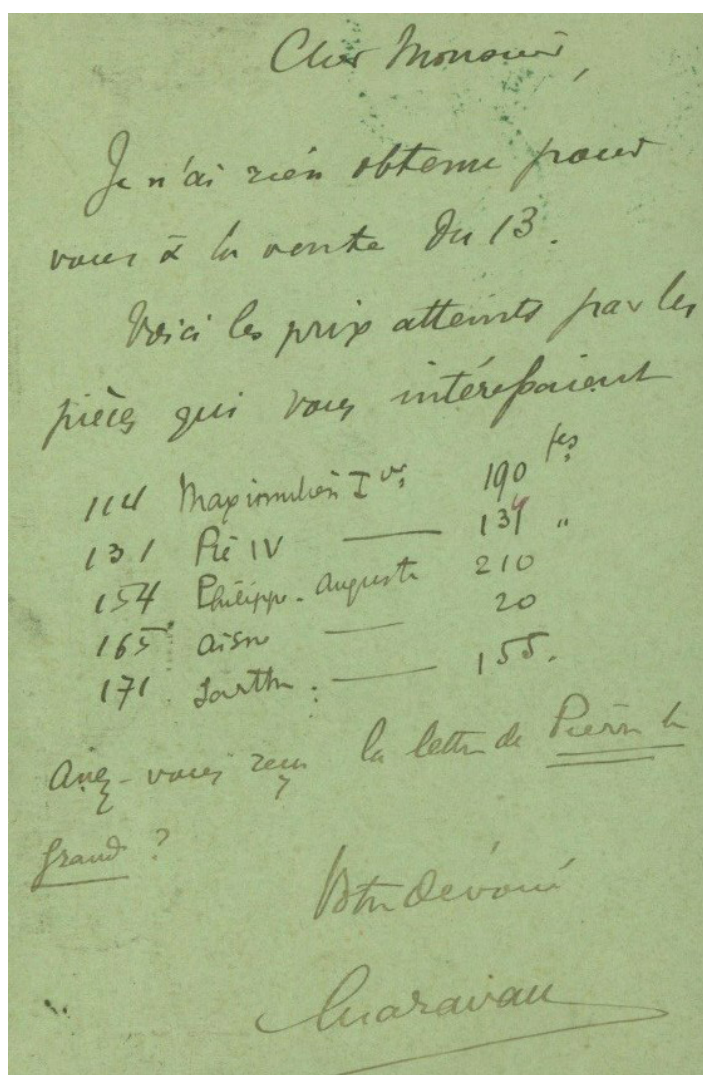 Cher Monsieur,
Je n'ai rien obtenu pour
vous à la vente du 13.
Voici les prix atteints par les
pièces qui vous intéressaient
114 Maximilien Ier 190 fcs
131 Pie IV — 134 "
154 Philippe-Auguste 210
165 Aisne — 20
171 Sarthe : — 155.
Avez-vous reçu la lettre de Pierre le
Grand ?
Votre dévoué
Charavay